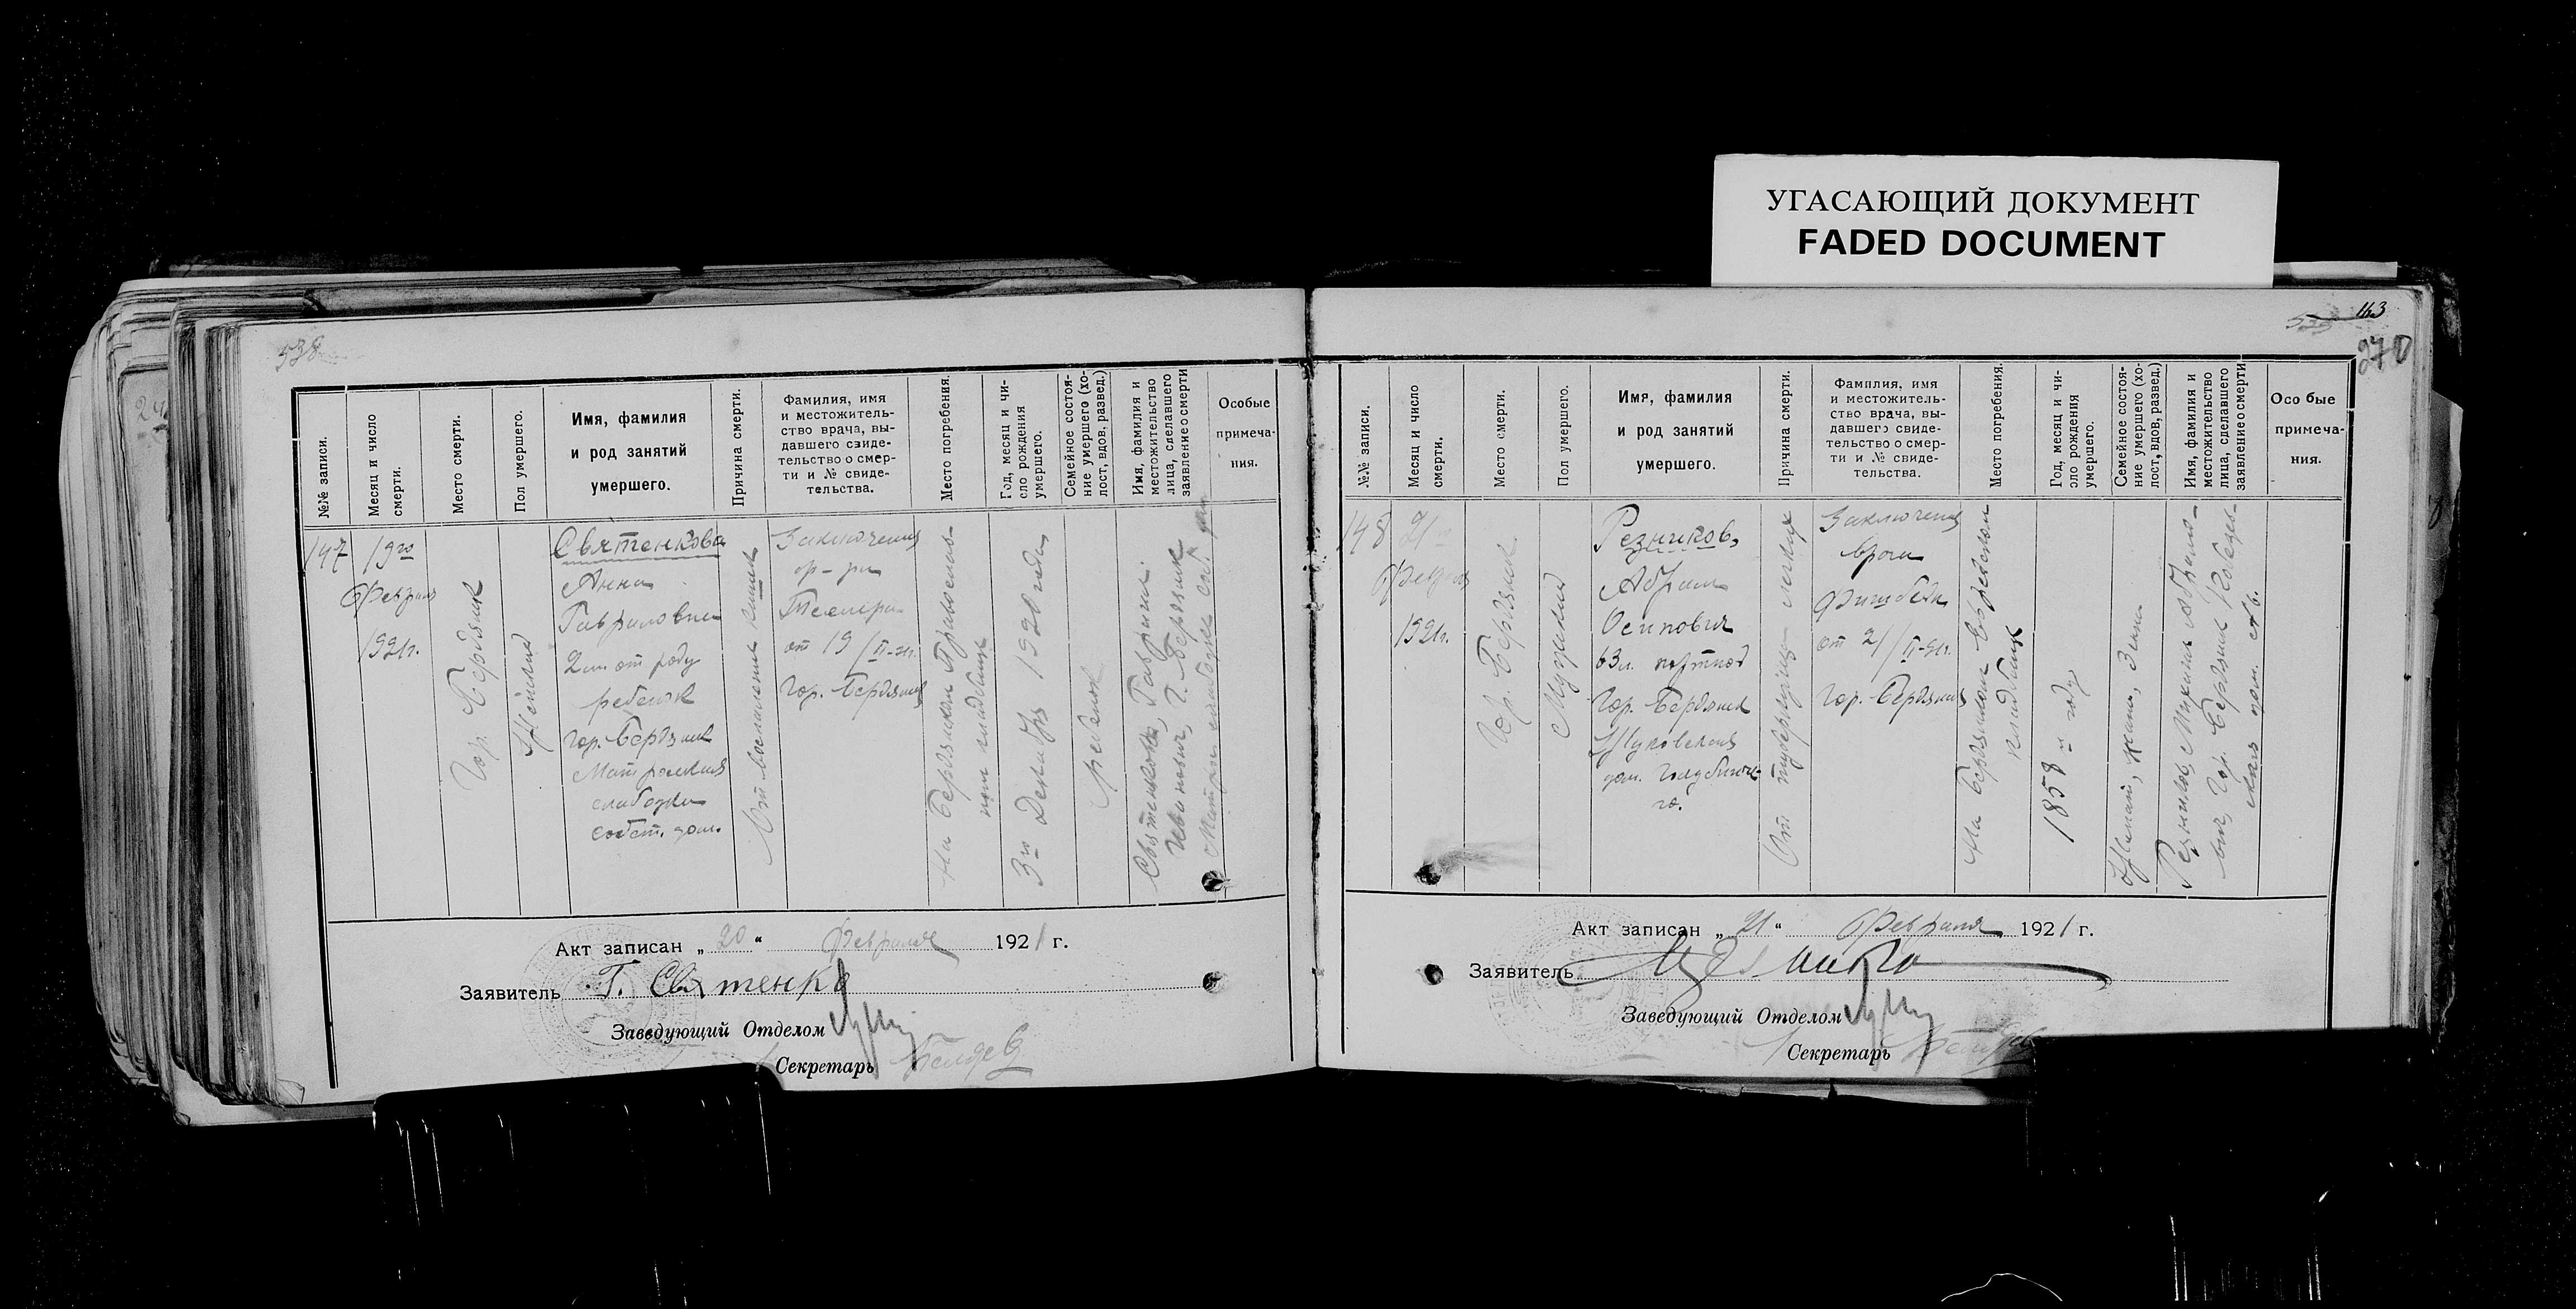 УГАСАЮЩИЙ ДОКУМЕНТ
FADED DOCUMENT
538
№№ записи.
Месяц и число
смерти.
Место смерти.
Пол умершего.
Имя, фамилия
и род занятий
умершего.
Причина смерти.
Фамилия, имя
и местожитель-
ство врача, вы-
давшего свиде-
тельство о смер-
ти и № свиде-
тельства.
Место погребения.
Год, месяц и чи-
сло рождения
умершего.
Семейное состоя-
ние умершего (хо-
лост, вдов, развед.)
Имя, фамилия и
местожительство
лица, сделавшего
заявление о смерти
Особые
примеча-
ния.
147
19го
Февраля
1921г.
Гор. Бердянск
Женский
Святенкова
Анна
Гавриловна
2 м от роду
ребенок
гор. Бердянск
Матросская
слабодка
собст. дом.
От воспаления кишек
Заключения
от 19/II-21г.
Гор. Бердянск
На Бердянском Православ-
ном кладбище
3го Декабря 1920 года
ребенок
Святенков, Гавриил
Иванович, г. Бердянск
Матросск слабодка соб дом
Акт записан „20“ Февраля 1921 г.
Заявитель Г. Святенко
Заведующий Отделом
Секретарь
163
270
№№ записи.
Месяц и число
смерти.
Место смерти.
Пол умершего.
Имя, фамилия
и род занятий
умершего.
Причина смерти.
Фамилия, имя
и местожитель-
ство врача, вы-
давшего свиде-
тельство о смер-
ти и № свиде-
тельства.
Место погребения.
Год, месяц и чи-
сло рождения
умершего.
Семейное состоя-
ние умершего (хо-
лост, вдов, развед.)
Имя, фамилия и
местожительство
лица, сделавшего
заявление о смерти
Осо бые
примеча-
ния.
148
21го
Февраля
1921г.
Гор. Бердянск
Мужской
Резников,
Абрам
Осипович
63л. портной
Гор. Бердянск
Жуковская
дом.
го.
От туберкулеза легких
Заключения
врача
от 21/II-21г.
Гор. Бердянск
На Бердянском Еврейском
кладбище
1858 м году
Женат, жена,
Резников, Михаил Абрамо-
вич, Гор. Бердянск
дом. №
Акт записан „21“ Февраля 1921 г.
Заявитель
Заведующий Отделом
Секретарь